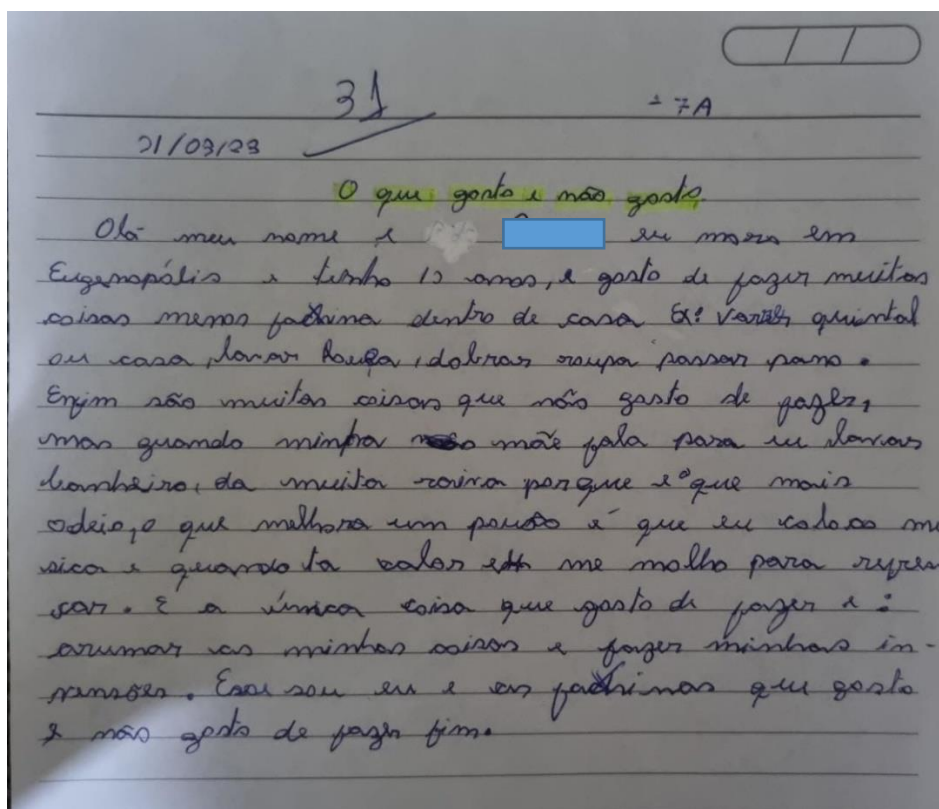 31 - 7A
21/03/23
O que gosto e não gosto.
Olá meu nome e eu moro em
Eugenopólis e tenho 12 anos, e gosto de fazer muitas
coisas menos faxina dentro de casa Ex: varrer quintal
ou casa, lavar louça, dobrar roupa passar pano.
Enfim são muitas coisas que não gosto de fazer,
mas quando minha mãe fala para eu lavar
banheiro, da muita raiva porque e o que mais
odeio, o que melhora um pouco é que eu coloco mu
sica e quando ta calor me molho para refres
car. E a única coisa que gosto de fazer e:
arumar as minhas coisas e fazer minhas in-
vensões. Esse sou eu e as faxinas que gosto
e não gosto de fazer fim.